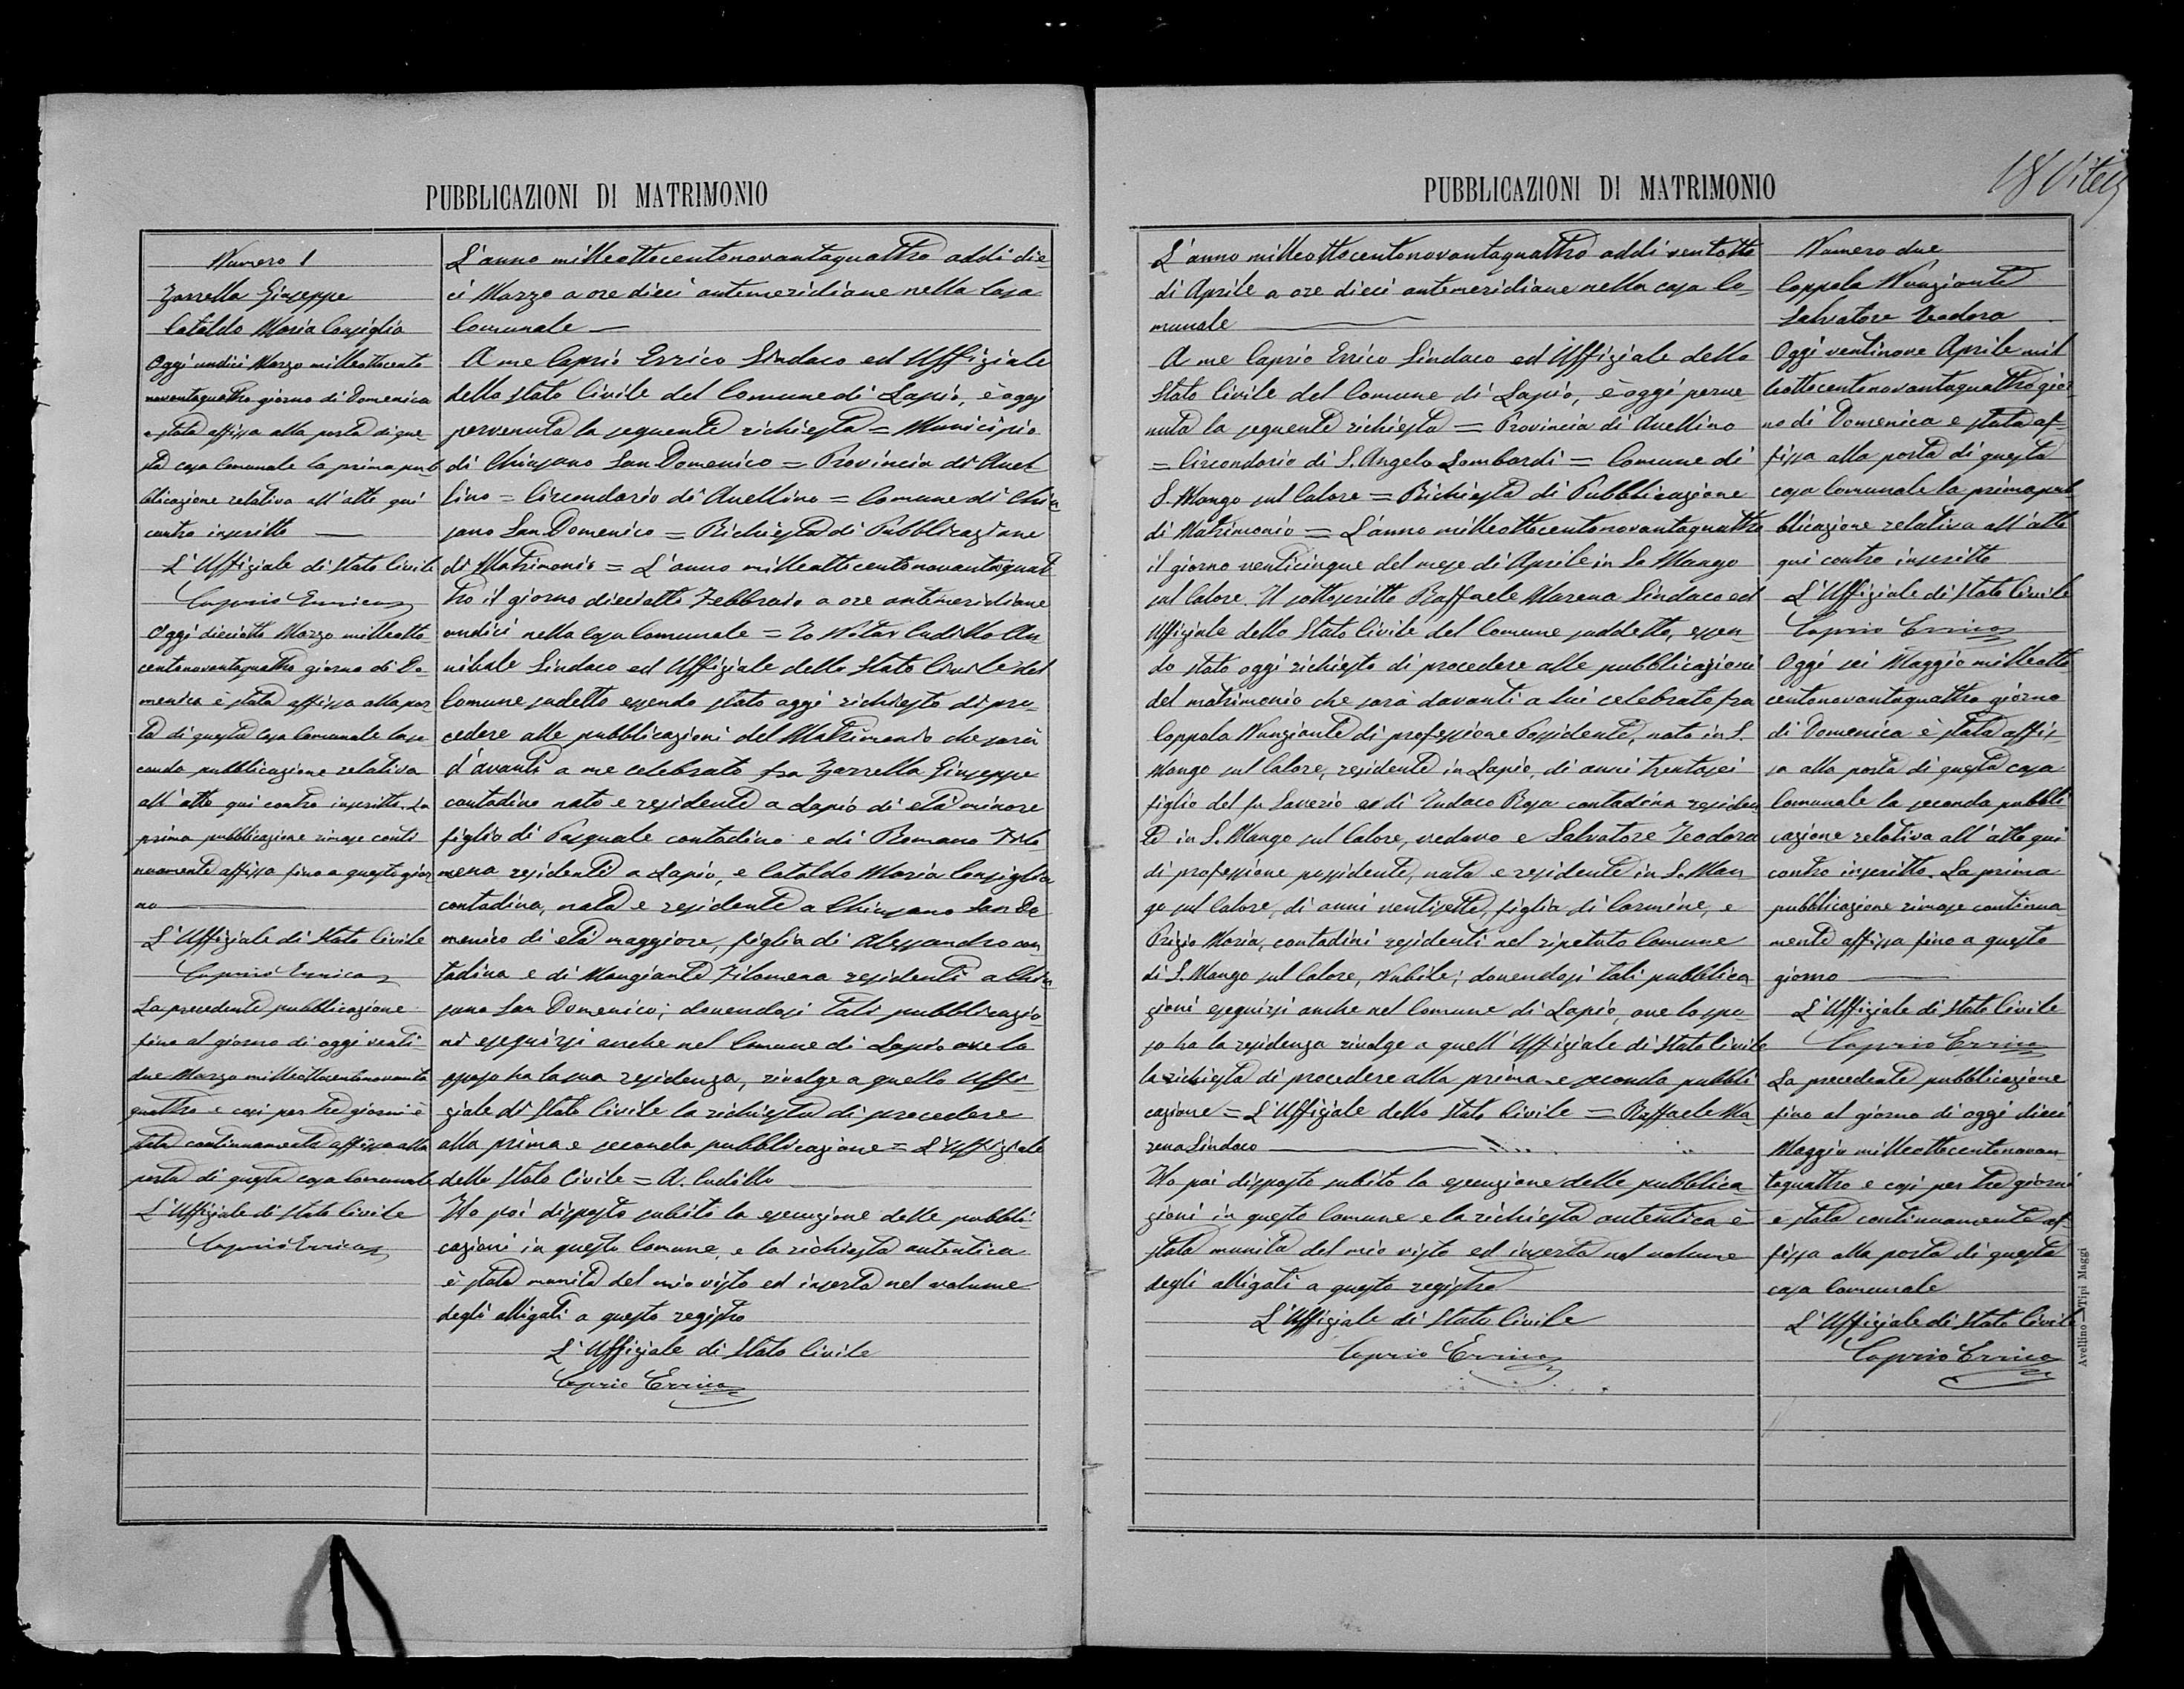 PUBBLICAZIONI DI MATRIMONIO
Numero 1
Zarrella Giuseppe
Cataldo Maria Consiglia
Oggi undici Marzo milleottocento
novantaquattro giorno di Domenica
è stata affissa alla porta di que-
sta casa Comunale la prima pub
blicazione relativa all'atto qui
contro inscritto
L'Uffiziale di Stato Civile
Caprio Errico
Oggi dieciotto Marzo milleotto-
centonovantaquattro giorno di Do-
menica è stata affissa alla por-
ta di questa casa Comunale la se
conda pubblicazione relativa
all'atto qui contro inscritto. La
prima pubblicazione rimase conti
nuamente affissa fino a questo gior
no
L'Uffiziale di Stato Civile
Caprio Errico
La precedente pubblicazione
fino al giorno di oggi venti-
due Marzo milleottocentonovanta
quattro e così per tre giorni è
stata continuamente affissa alla
porta di questa casa Comunale
L'Uffiziale di Stato Civile
Caprio Errico
L'anno milleottocentonovantaquattro addi die-
ci Marzo a ore dieci antemeridiane nella Casa
Comunale
A me Caprio Errico Sindaco ed Uffiziale
dello Stato Civile del Comune di Lapio, è oggi
pervenuta la seguente richiesta = Municipio
di Chiusano San Domenico = Provincia di Avel
lino = Circondario di Avellino = Comune di Chiu
sano San Domenico = Richiesta di Pubblicazione
di Matrimonio = L'anno milleottocentonovantaquat
tro il giorno dieciotto Febbraio a ore antemeridiane
undici nella Casa Comunale = Io Notar Cudillo An
nibale Sindaco ed Uffiziale dello Stato Civile del
Comune sudetto essendo stato oggi richiesto di pro-
cedere alle pubblicazioni del Matrimonio che sarà
d'avanti a me celebrato fra Zarrella Giuseppe
contadino nato e residente a Lapio di età minore
figlio di Pasquale contadino e di Romano Filo
mena residenti a Lapio, e Cataldo Maria Consiglia
contadina, nata e residente a Chiusano San Do
menico di età maggiore, figlia di Alessandro con
tadino e di Mangiante Filomena residenti a Chiu
sano San Domenico; dovendosi tali pubblicazio-
ni eseguirsi anche nel Comune di Lapio ove lo
sposo ha la sua residenza, rivolge a quello Uffi-
ziale di Stato Civile la richiesta di procedere
alla prima e seconda pubblicazione = L'Uffiziale
dello Stato Civile = A. Cudillo
Ho poi disposto subito la esecuzione delle pubbli-
cazioni in questo Comune, e la richiesta autentica
è stata munita del mio visto ed inserta nel volume
degli alligati a questo registro
L'Uffiziale di Stato Civile
Caprio Errico
PUBBLICAZIONI DI MATRIMONIO
L'anno milleottocentonovantaquattro addi ventotto
di Aprile a ore dieci antemeridiane nella casa Co-
munale
A me Caprio Errico Sindaco ed Uffiziale dello
Stato Civile del Comune di Lapio, è oggi perve-
nuta la seguente richiesta = Provincia di Avellino
= Circondario di S. Angelo Lombardi = Comune di
S. Mango sul Calore = Richiesta di Pubblicazione
di Matrimonio = L'anno milleottocentonovantaquattro
il giorno venticinque del mese di Aprile in S. Mango
sul Calore. Il sottoscritto Raffaele Marena Sindaco ed
Uffiziale dello Stato Civile del Comune suddetto, essen-
do stato oggi richiesto di procedere alle pubblicazioni
del matrimonio che sarà davanti a lui celebrato fra
Coppola Nunziante di professione Possidente, nato in S.
Mango sul Calore, residente in Lapio, di anni trentasei
figlio del fu Saverio e di Rosa contadina residen
te in S. Mango sul Calore, vedovo e Salvatore Teodora
di professione possidente, nata e residente in S. Man-
go sul Calore, di anni ventisette, figlia di Carmine, e
Prizio Maria, contadini residenti nel ripetuto Comune
di S. Mango sul Calore, Nubile; dovendosi tali pubblica
zioni eseguirsi anche nel Comune di Lapio, ove lo spo-
so ha la residenza rivolge a quell'Uffiziale di Stato Civile
la richiesta di procedere alla prima e seconda pubbli
cazione = L'Uffiziale dello Stato Civile = Raffaele Ma-
rena Sindaco
Ho poi disposto subito la esecuzione delle pubblica-
zioni in questo Comune e la richiesta autentica è
stata munita del mio visto ed inserta nel volume
degli alligati a questo registro
L'Uffiziale di Stato Civile
Caprio Errico
Numero due
Coppola Nunziante
Salvatore Teodora
Oggi ventinove Aprile mil
leottocentonovantaquattro gior
no di Domenica è stata af-
fissa alla porta di questa
casa Comunale la prima pub
blicazione relativa all'atto
qui contro inscritto
L'Uffiziale di Stato Civile
Caprio Errico
Oggi sei Maggio milleotto
centonovantaquattro giorno
di Domenica è stata affis
sa alla porta di questa casa
Comunale la seconda pubbli
cazione relativa all'atto qui
contro inscritto. La prima
pubblicazione rimase continua-
mente affissa fino a questo
giorno
L'Uffiziale di Stato Civile
Caprio Errico
La precedente pubblicazione
fino al giorno di oggi dieci
Maggio milleottocentonovan-
taquattro e così per tre giorni
è stata continuamente af
fissa alla porta di questa
casa Comunale
L'Uffiziale di Stato Civile
Caprio Errico
Avellino—Tipi Maggi